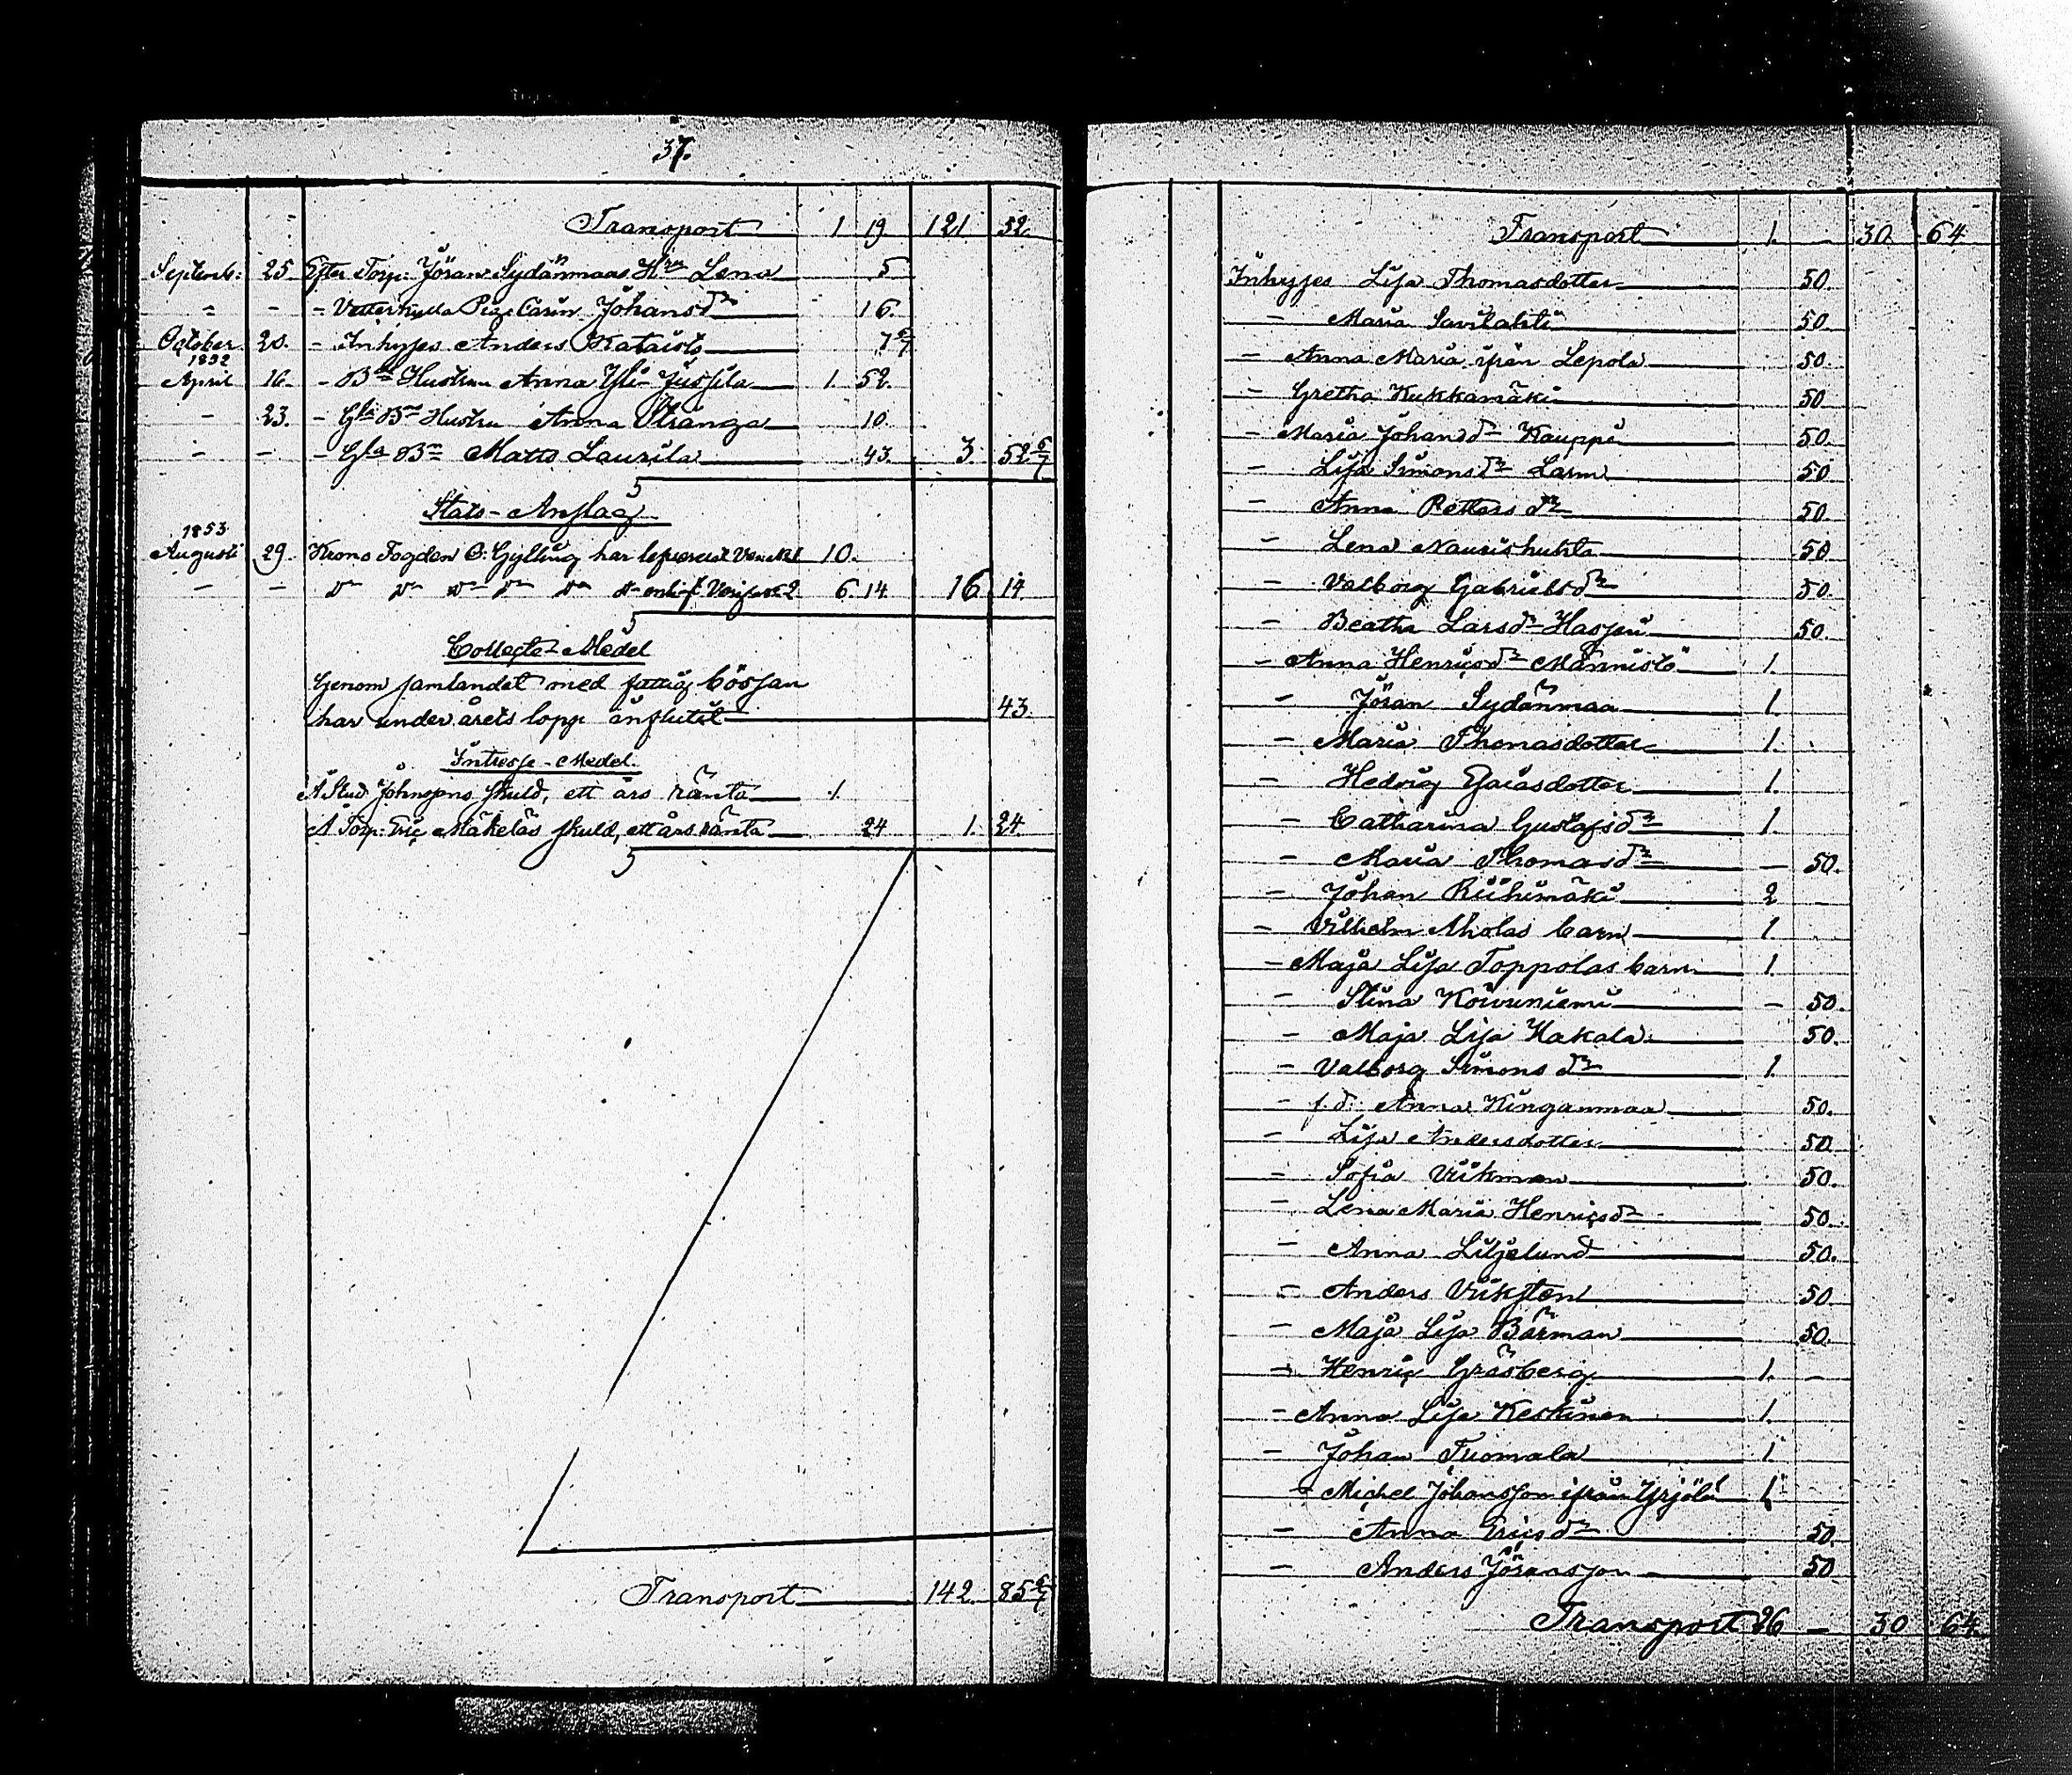 37.
Transport 1 19 121 52.
Septemb: 25 Efter Torp: Jöran Sydänmaas H:ru Lena 5
- - - Vetterkulla Piga Carin Johansdr 16.
October 20. - Inhyses Anders Kataisto 7 6/7
1852
April 16. - Bde Hustru Anna Yli-Jussila 1. 52.
- 23. - Gla Bde Hustru Anna Stranga 10.
- - - Gla Bn Matts Laurila 43. 3. 52 6/7
Stats-Anslag
1853
Augusti 29. Krono Fogden C: Gylling har 10.
- - dn dn dn dn dn 2. 6. 14. 16 14.
Collecte-Medel
Genom samlandet med fattig bössan
har under årets lopp influtit 43.
Intresse-Medel.
A Stud Johnssons skuld, ett års ränta 1.
A Torp: Eric Mäkeläs skuld, ett års ränta 24 1. 24.
Transport 142. 85 5/7
Transport 1. - 30. 64
Inhyses Lisa Thomasdotter 50.
- Maria Savilahti 50.
- Anna Maria ifrån Lepola 50.
- Gretha Kukkamäki 50
- Maria Johansdr Kauppi 50.
- Lisa Simonsdr Larm 50
- Anna Petters dr 50.
- Lena Naurishuhta 50
- Valborg Gabrielsdr 50.
- Beatha Larsdr Hasseni 50.
- Anna Henricsdr Männistö 1.
- Jöran Sydänmaa 1.
- Maria Thomasdotter 1.
- Hedvig Esaiasdotter 1.
- Catharina Gustafsdr 1.
- Maria Thomasdr - 50.
- Johan Riihimäki 2 -
- Vilhelm Aholas barn 1.
- Maja Lisa Toppolas barn 1.
- Stina Koivuniemi - 50.
- Maja Lisa Hakala 50.
- Valborg Simons dr 1.
- f. d. Anna Kinganmaa 50.
- Lisa Andersdotter 50.
- Sofia Vikman 50.
- Lena Maria Henricsdr 50.
- Anna Liljelund 50.
- Anders Viksten 50.
- Maja Lisa Bärman 50.
- Henric Gräsberg 1. -
- Anna Lisa Keskinen 1.
- Johan Tuomala 1
- Michel Johansson ifrån Yrjölä 1
- Anna Ericsdr 50.
- Anders Jöransson 50
Transport 26 - 30 64